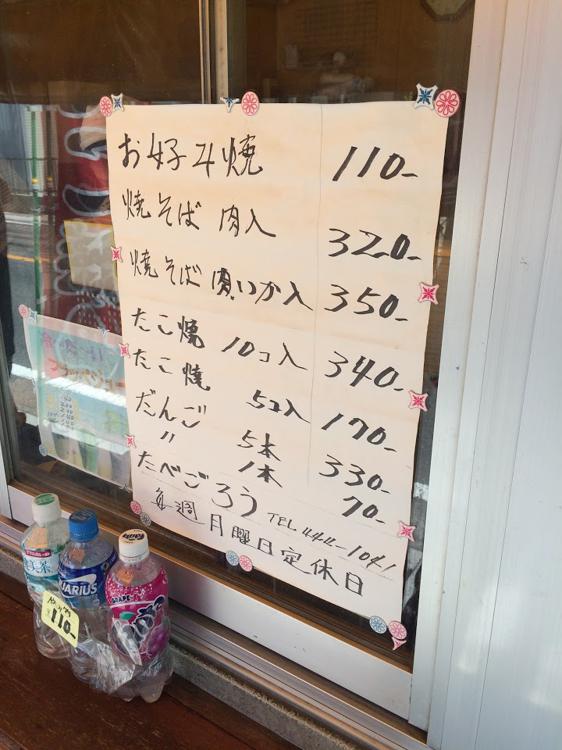 お好み焼 110-
焼そば 肉入 320-
焼そば 肉いか入 350-
たこ焼 10コ入 340-
たこ焼 5コ入 170-
だんご 5本 330-
〃 1本 70-
たべごろう TEL 444-1041
毎週月曜日定休日
110-
UARIUS